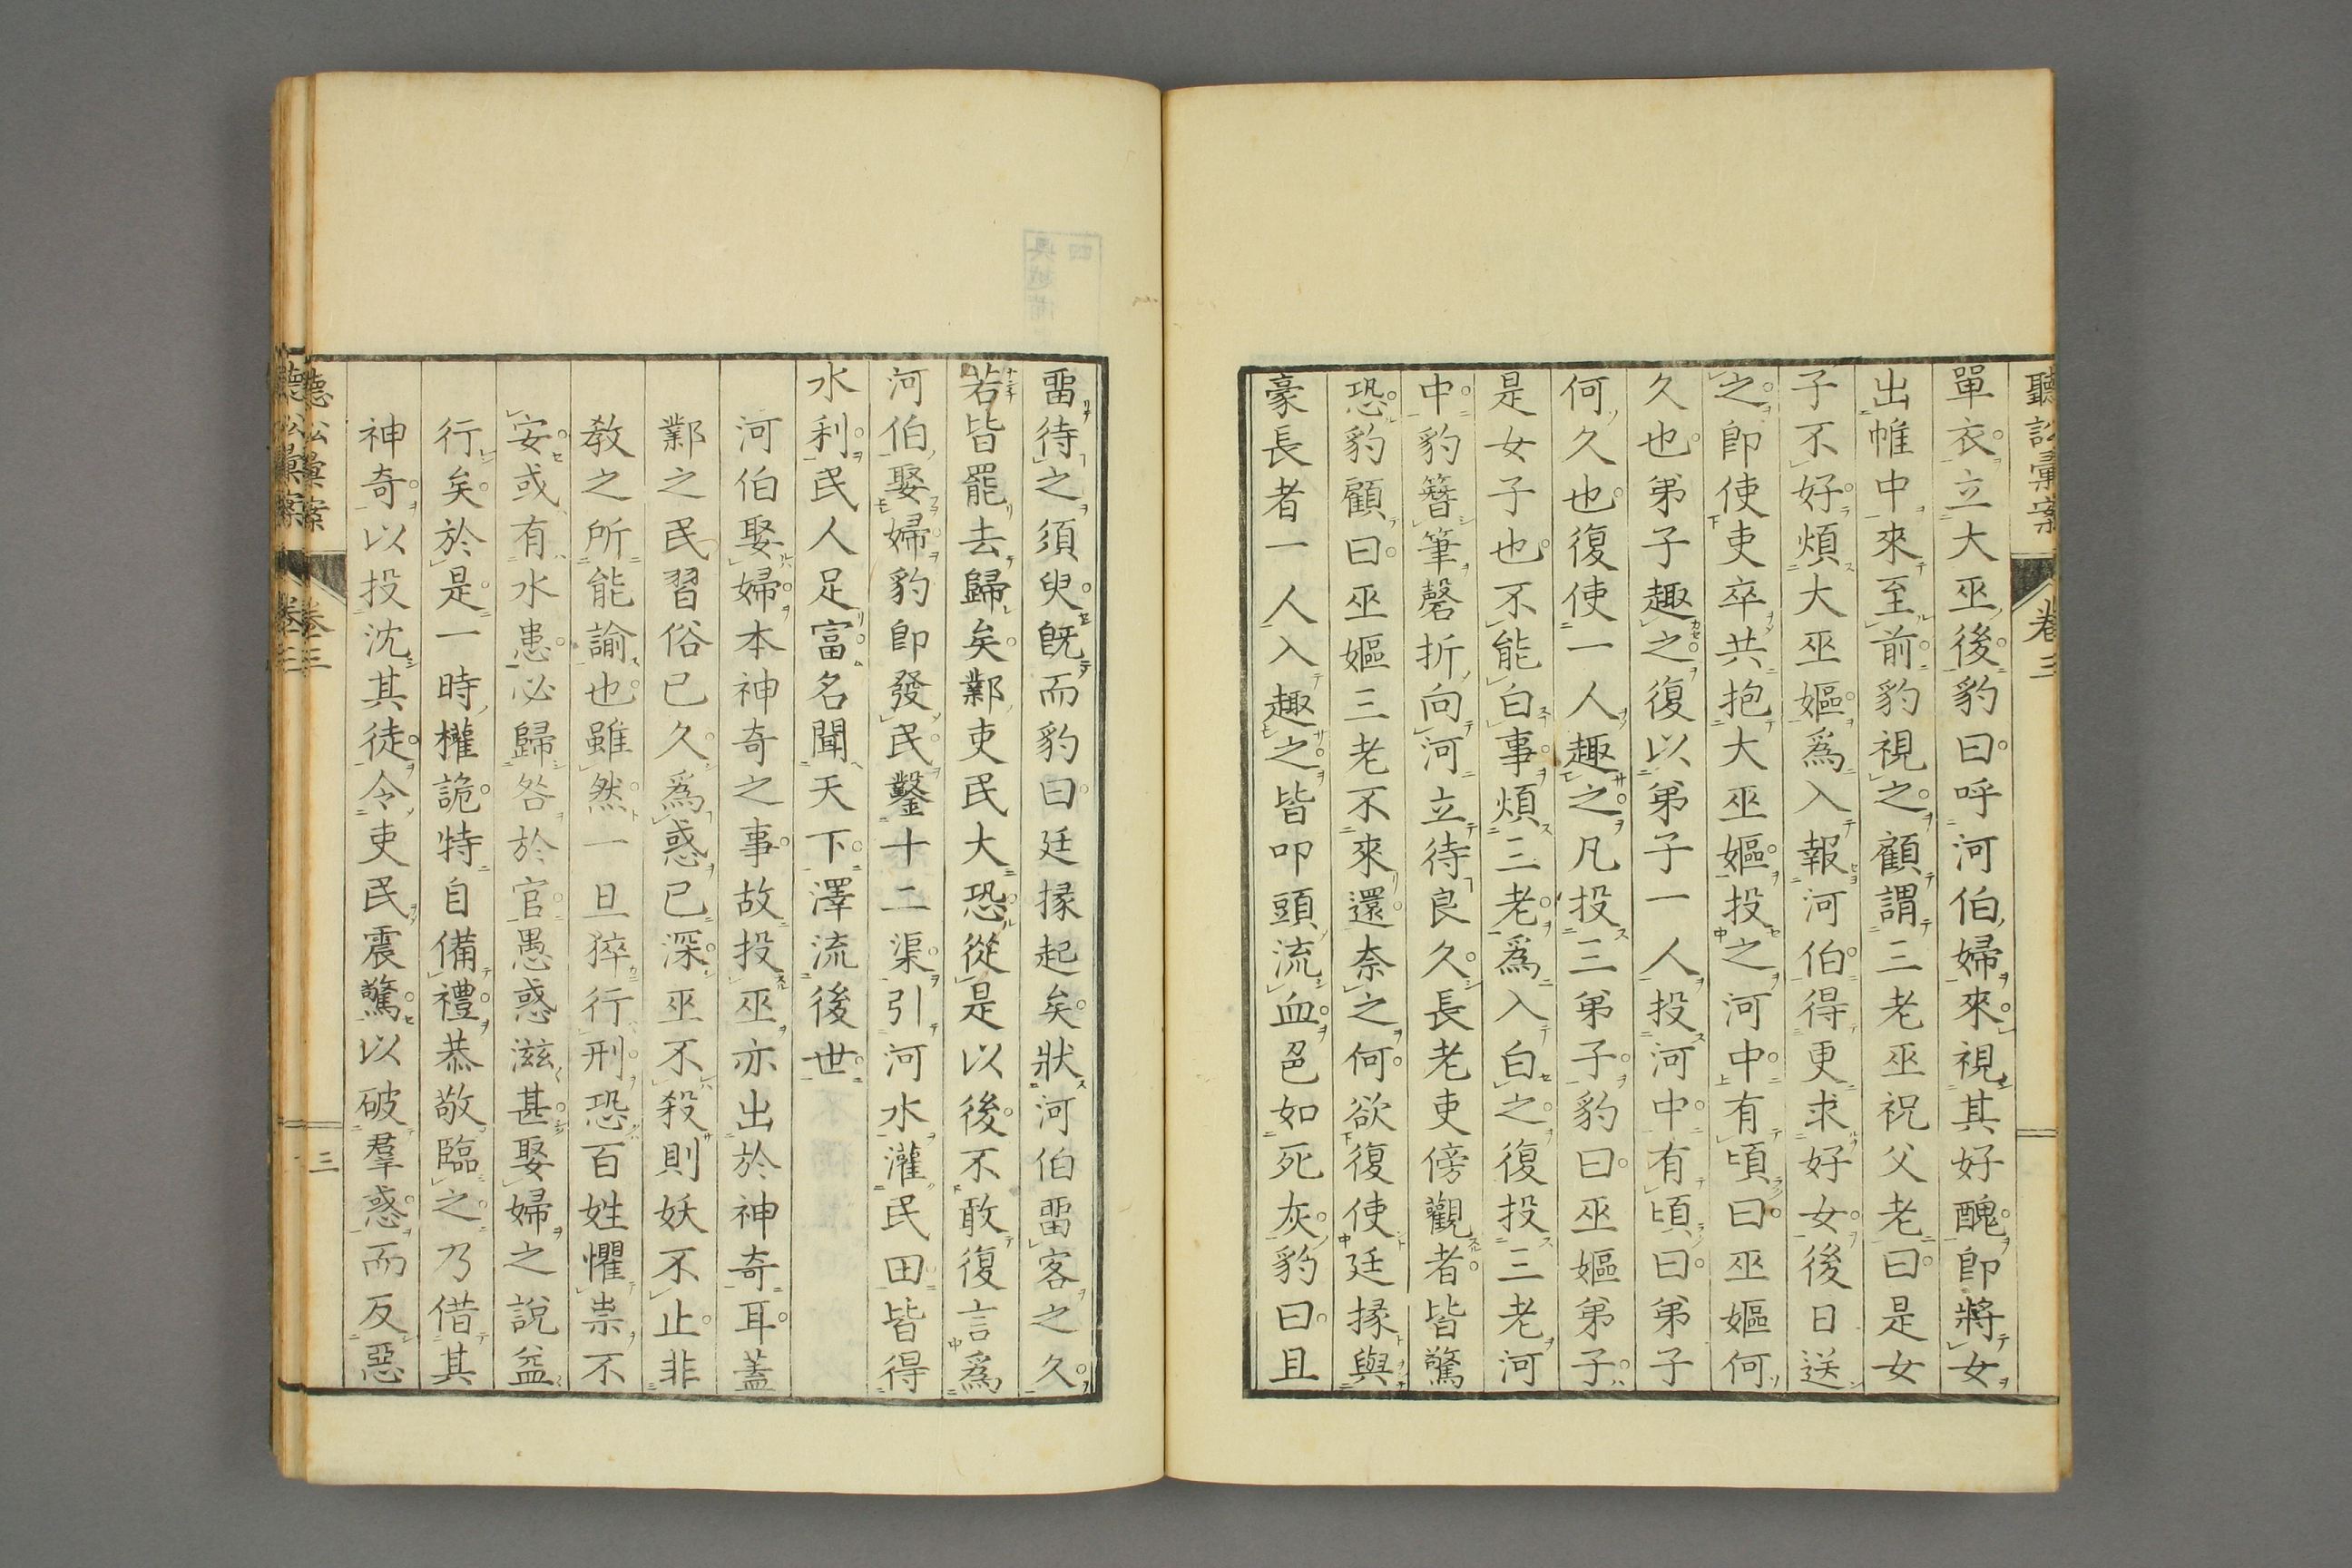 聽訟彙案 卷三
單衣立大巫後豹曰呼河伯婦來視其好醜卽將女
出帷中來至前豹視之顧謂三老巫祝父老曰是女
子不好煩大巫嫗爲入報河伯得更求好女後日送
之卽使吏卒共抱大巫嫗投之河中有頃曰巫嫗何
久也弟子趣之復以弟子一人投河中有頃曰弟子
何久也復使一人趣之凡投三弟子豹曰巫嫗弟子
是女子也不能白事煩三老爲入白之復投三老河
中豹簪筆磬折向河立待良久長老吏傍觀者皆驚
恐豹顧曰巫嫗三老不來還奈之何欲復使廷掾與
豪長者一人入趣之皆叩頭流血色如死灰豹曰且
畱待之須臾旣而豹曰廷掾起矣狀河伯畱客之久
若皆罷去歸矣鄴吏民大恐從是以後不敢復言爲
河伯娶婦豹卽發民鑿十二渠引河水灌民田皆得
水利民人足富名聞天下澤流後世
河伯娶婦本神奇之事故投巫亦出於神奇耳蓋
鄴之民習俗已久爲惑已深巫不殺則妖不止非
敎之所能諭也雖然一旦猝行刑恐百姓懼祟不
安或有水患必歸咎於官愚惑滋甚娶婦之說益
行矣於是一時權詭特自備禮恭敬臨之乃借其
神奇以投沈其徒令吏民震驚以破羣惑而反惡
聽訟彙案 卷三 三